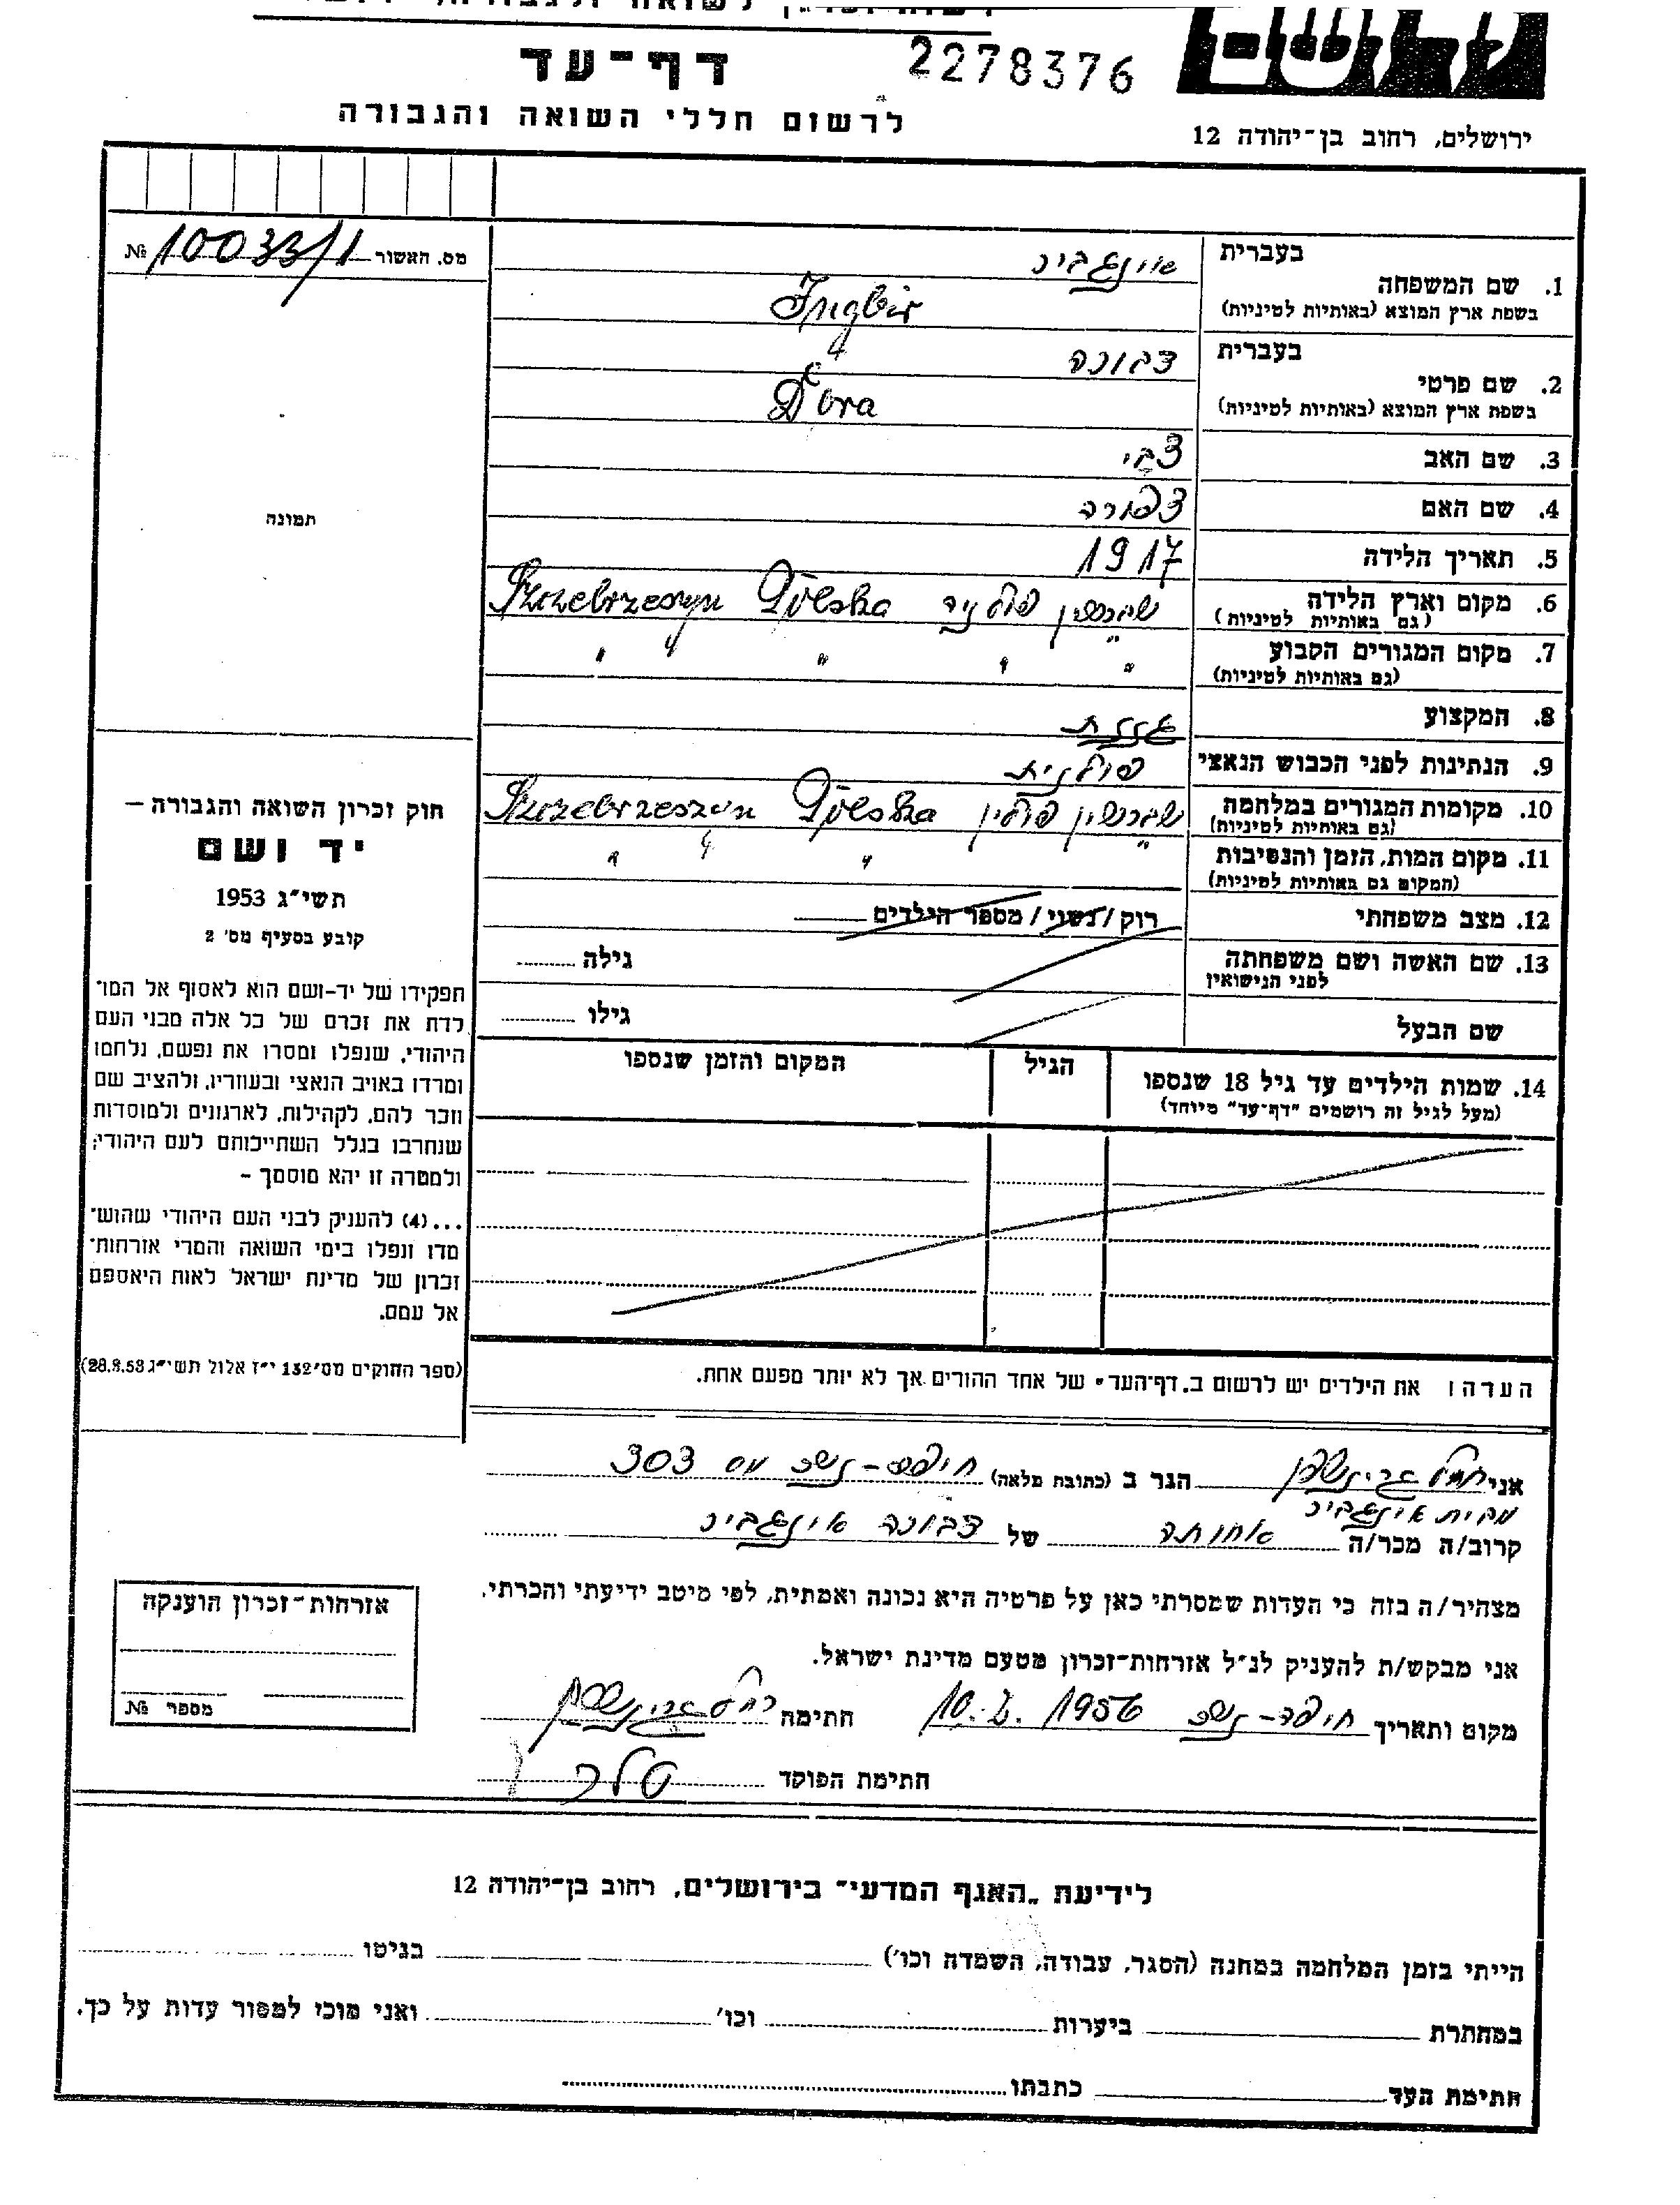 דף-עד
2278376
לרשום חללי השואה והגבורה
ירושלים, רחוב בן-יהודה 12
מס. האשור 10033/1 №
בעברית
1. שם המשפחה אינגביר
בשפת ארץ המוצא (באותיות לטיניות) Ingbir
בעברית
2. שם פרטי דבורה
בשפת ארץ המוצא (באותיות לטיניות) Dora
3. שם האב צבי
4. שם האם צפורה
תמונה
5. תאריך הלידה 1917
6. מקום וארץ הלידה שברשין פולניה Szczebrzeszyn Polska
(גם באותיות לטיניות)
7. מקום המגורים הקבוע " " " "
(גם באותיות לטיניות)
8. המקצוע
9. הנתינות לפני הכבוש הנאצי פולנית
10. מקומות המגורים במלחמה שברשין פולין Szczebrzeszyn Polska
(גם באותיות לטיניות)
11. מקום המות, הזמן והנסיבות " " " "
(המקום גם באותיות לטיניות)
12. מצב משפחתי רוק/נשוי/מספר הילדים
13. שם האשה ושם משפחתה גילה
לפני הנישואין
שם הבעל גילו
14. שמות הילדים עד גיל 18 שנספו הגיל המקום והזמן שנספו
(מעל לגיל זה רושמים "דף-עד" מיוחד)
חוק זכרון השואה והגבורה –
יד ושם
תשי"ג 1953
קובע בסעיף מס' 2
תפקידו של יד-ושם הוא לאסוף אל המו־
לדת את זכרם של כל אלה מבני העם
היהודי, שנפלו ומסרו את נפשם, נלחמו
ומרדו באויב הנאצי ובעוזריו, ולהציב שם
וזכר להם, לקהילות, לארגונים ולמוסדות
שנחרבו בגלל השתייכותם לעם היהודי;
ולמטרה זו יהא מוסמך –
...(4) להעניק לבני העם היהודי שהוש־
מדו ונפלו בימי השואה והמרי אזרחות־
זכרון של מדינת ישראל לאות היאספם
אל עמם.
(ספר החוקים מס' 132 י"ז אלול תשי"ג 28.8.53)
הערה: את הילדים יש לרשום ב„דף-העד" של אחד ההורים אך לא יותר מפעם אחת.
אני רחל גרינשפן הגר ב (כתובת מלאה) חיפה-נשר מס 303
מבית אינגביר
קרוב/ה מכר/ה אחותה של דבורה אינגביר
מצהיר/ה בזה כי העדות שמסרתי כאן על פרטיה היא נכונה ואמתית, לפי מיטב ידיעתי והכרתי.
אני מבקש/ת להעניק לנ"ל אזרחות-זכרון מטעם מדינת ישראל.
מקום ותאריך חיפה-נשר 1956 חתימה רחל גרינשפן
חתימת הפוקד
אזרחות-זכרון הוענקה
מספר №
לידיעת „האגף המדעי" בירושלים, רחוב בן-יהודה 12
הייתי בזמן המלחמה במחנה (הסגר, עבודה, השמדה וכו') בגיטו
במחתרת ביערות וכו' ואני מוכן למסור עדות על כך.
חתימת העד כתבתו